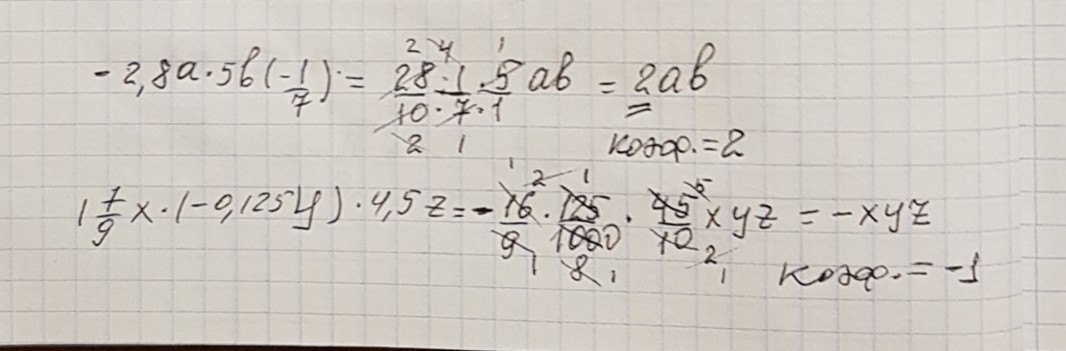 -2,8a·5b(-1/7)·= 28·1·5/10·7·1 ab = 2ab
коэф.=2
1 7/9 x·(-0,125y)·4,5z=-16/9·125/1000·45/10 xyz = -xyz
коэф.=-1